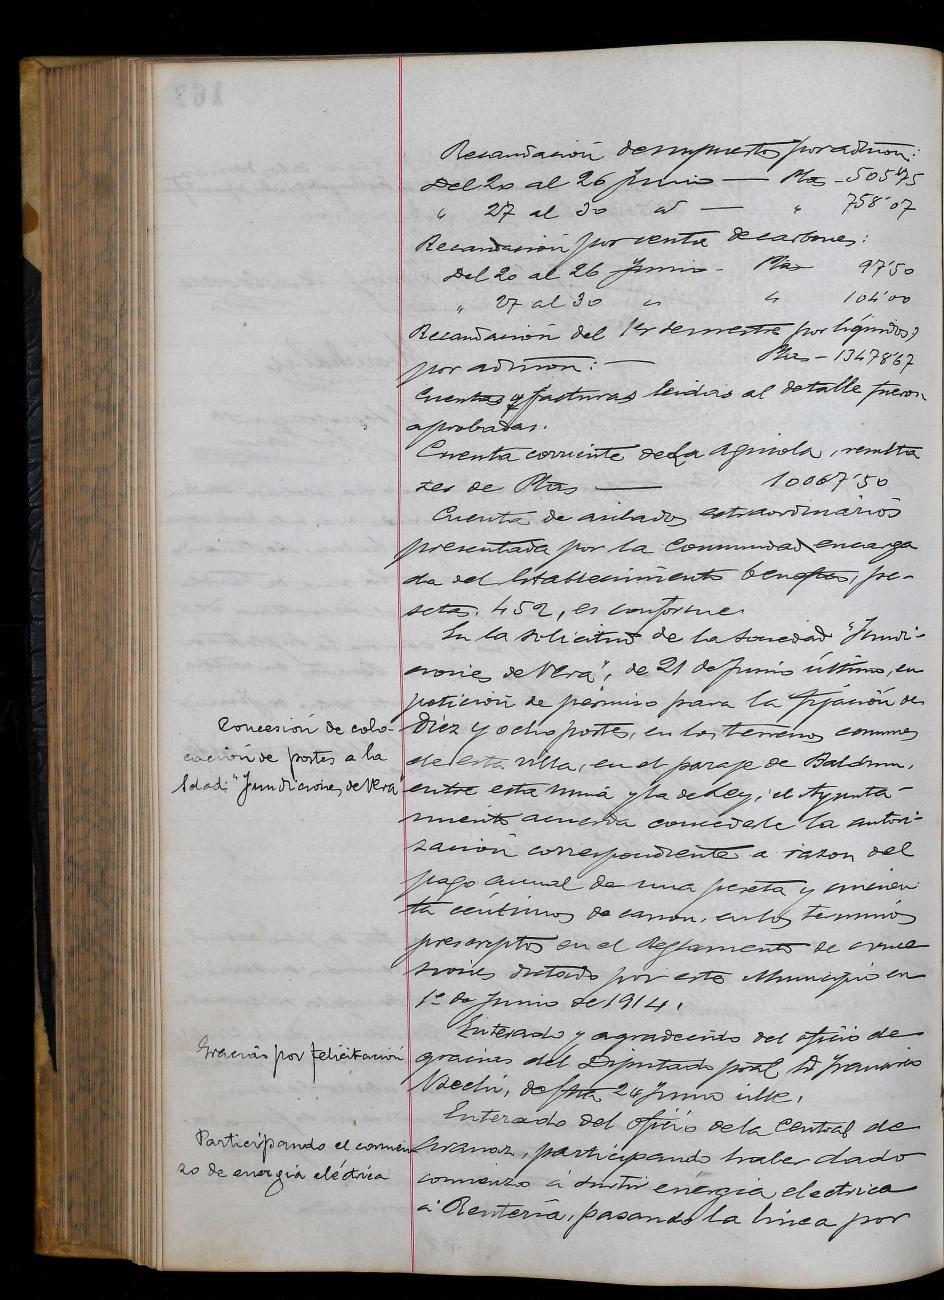 Recaudación de impuestos por admon:
Del 20 al 26 Junio — Ptas - 505'75
" 27 al 30 id — " 758'07
Recaudación por venta de carbones:
Del 20 al 26 Junio - Ptas 97'50
" 27 al 30 " " 104'00
Recaudación del 1er semestre por líquidos,
por admon: — Ptas - 13478'67
Cuentas y facturas leidas al detalle fueron
aprobadas.
Cuenta corriente de La Agricola, resulta
ser de Ptas — 10067'50
Cuenta de asilados extraordinarios
presentada por la Comunidad encarga
da del Establecimiento benefico, pe-
setas. 452, es conforme.
En la solicitud de la Sociedad "Fundi-
ciones de Vera", de 21 de Junio último, en
peticion de permiso para la fijación de
Concesión de colo-
cación de postes a la
Sdad: "Fundiciones de Vera"
diez y ocho postes, en los terrenos comunes
de esta villa, en el paraje de
entre esta mina y la de Ley; el Ayunta-
miento acuerda concederle la autori-
zación correspondiente a razon del
pago anual de una peseta y cincuen
ta céntimos de canon, en los terminos
prescriptos en el Reglamento de conce
siones dictado por este Municipio en
1º de Junio de 1914.
Gracias por felicitación
Enterado y agradecido del oficio de
gracias del Diputado pral D Francisco
de fha 24 Junio ulte.
Participando el comien
zo de energia eléctrica
Enterado del oficio de la Central de
participando haber dado
comienzo á surtir energia electrica
á Rentería, pasando la linea por